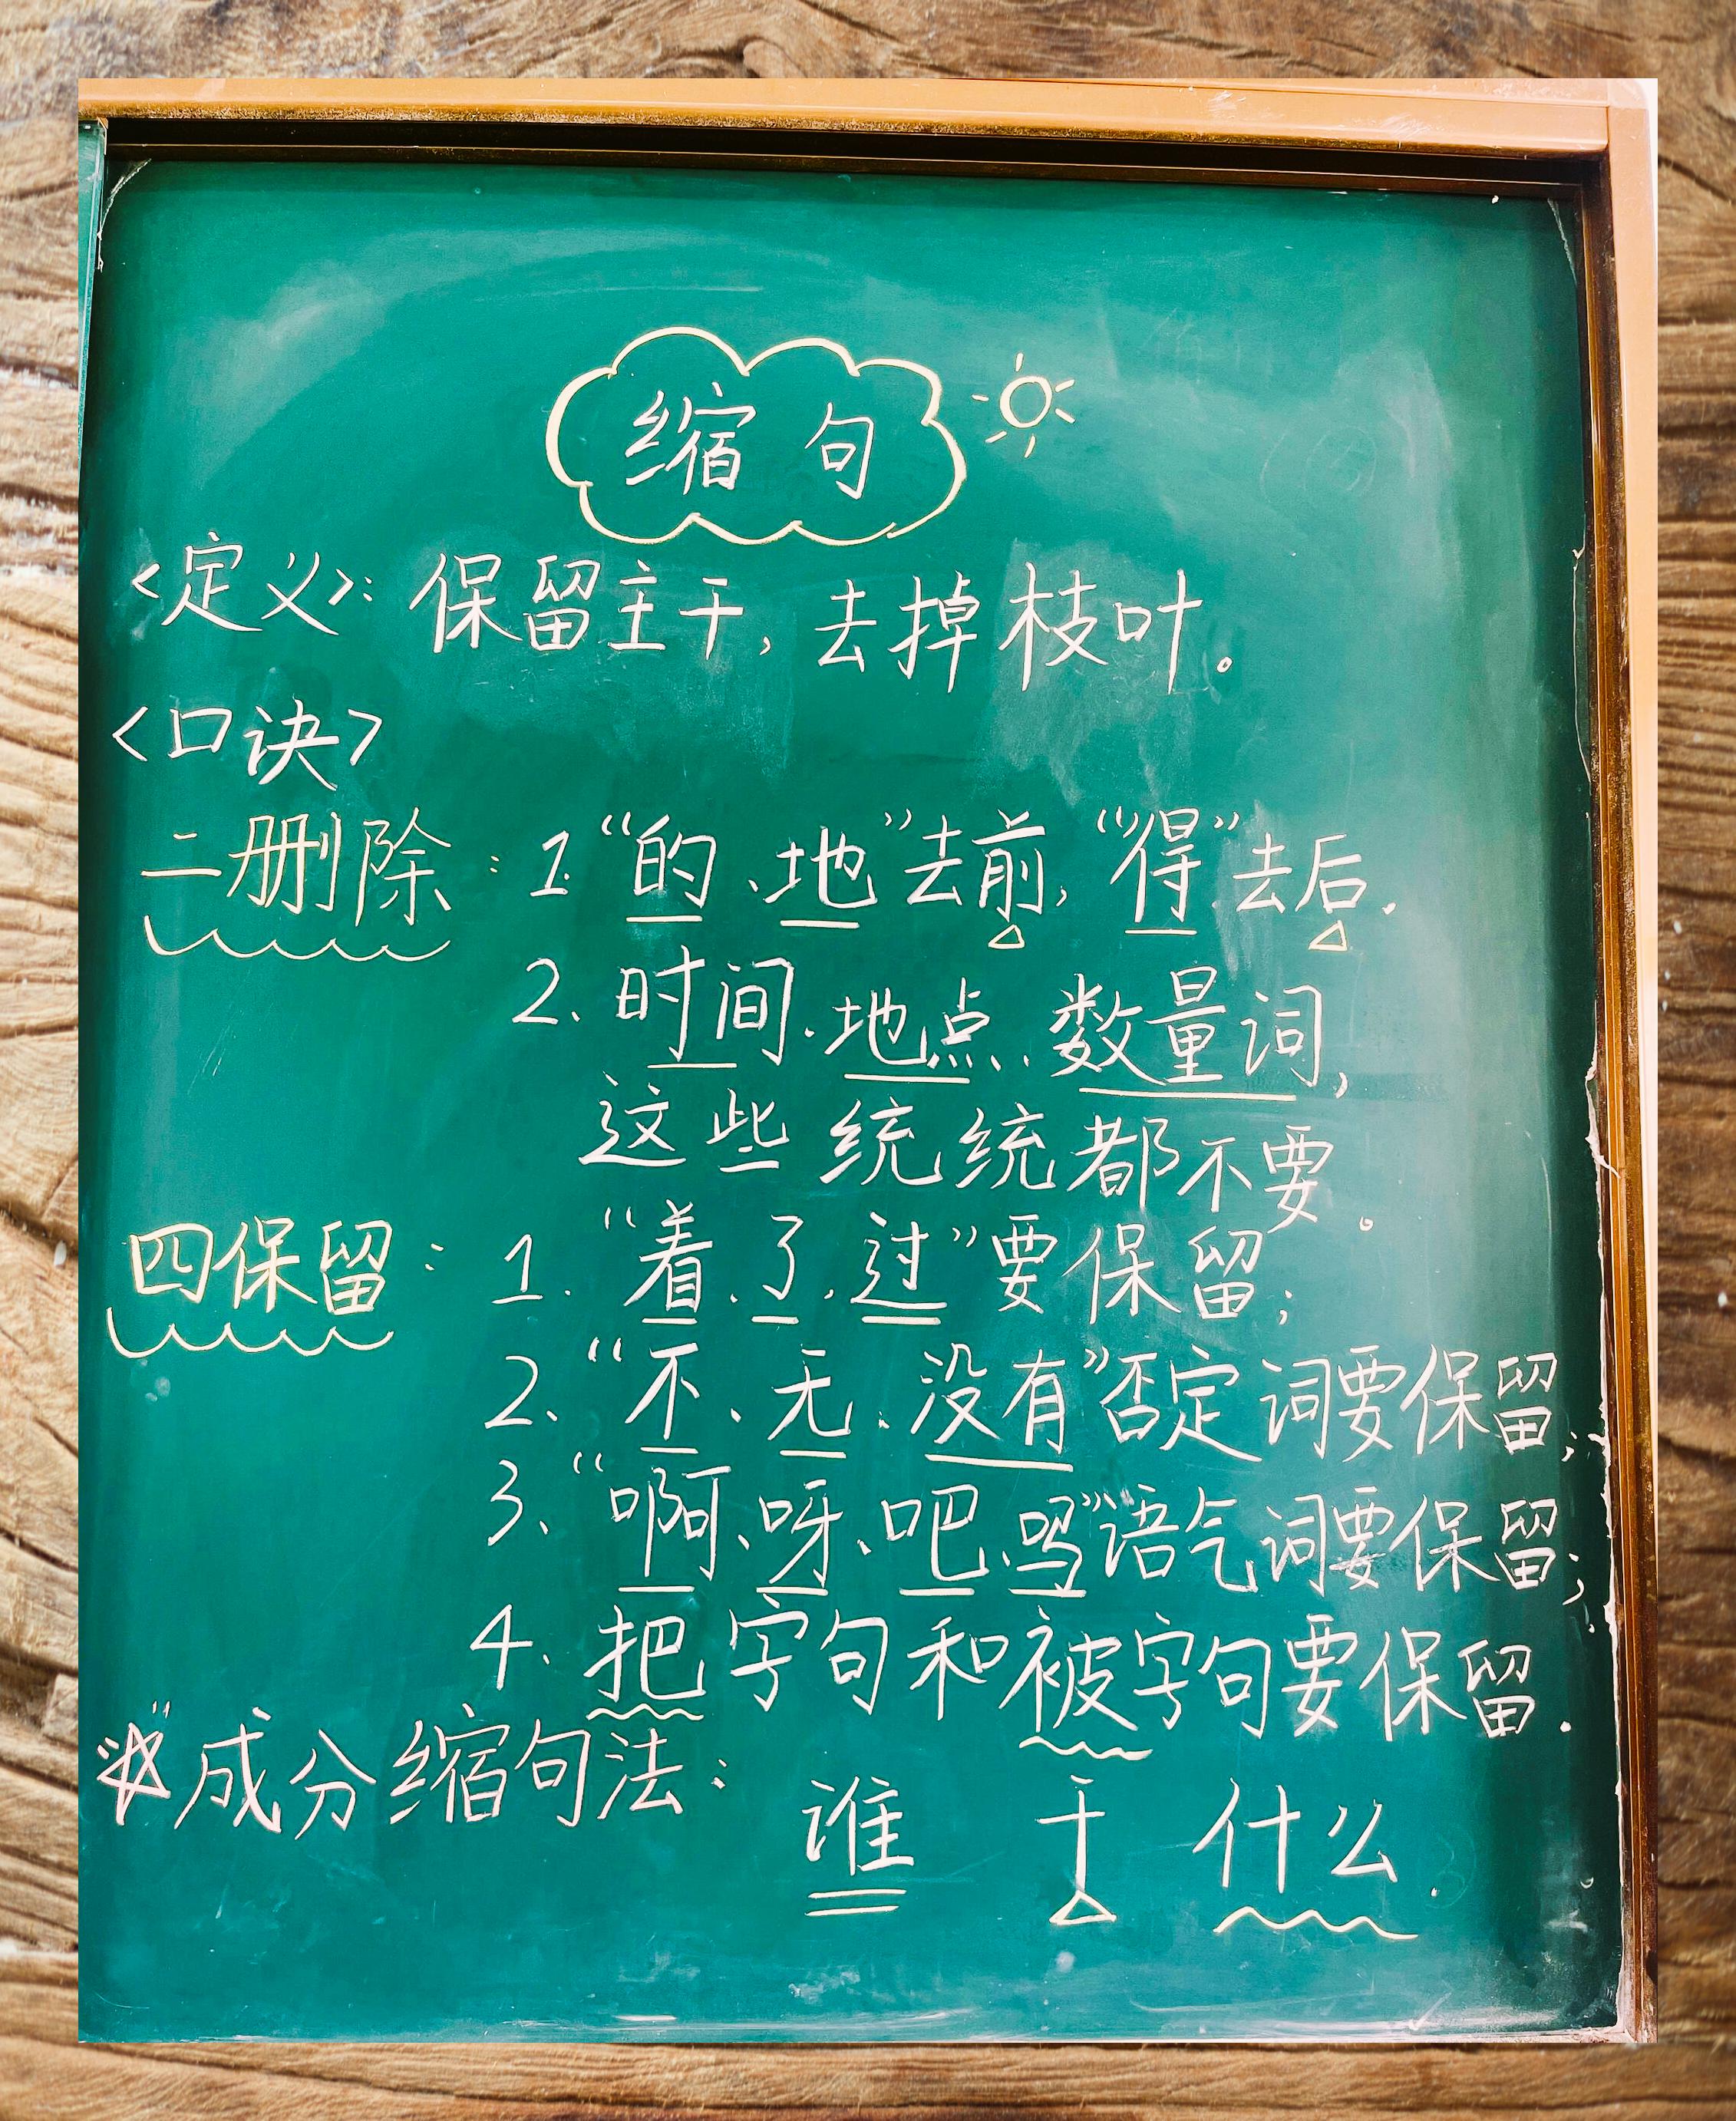 缩句
<定义>: 保留主干,去掉枝叶。
<口诀>
二删除: 1.“的、地”去前,“得”去后.
2. 时间、地点、数量词,
这些统统都不要。
四保留: 1.“着、了、过”要保留;
2、“不、无、没有”否定词要保留;
3、“啊、呀、吧、吗”语气词要保留;
4. 把字句和被字句要保留.
成分缩句法:
谁 干 什么.